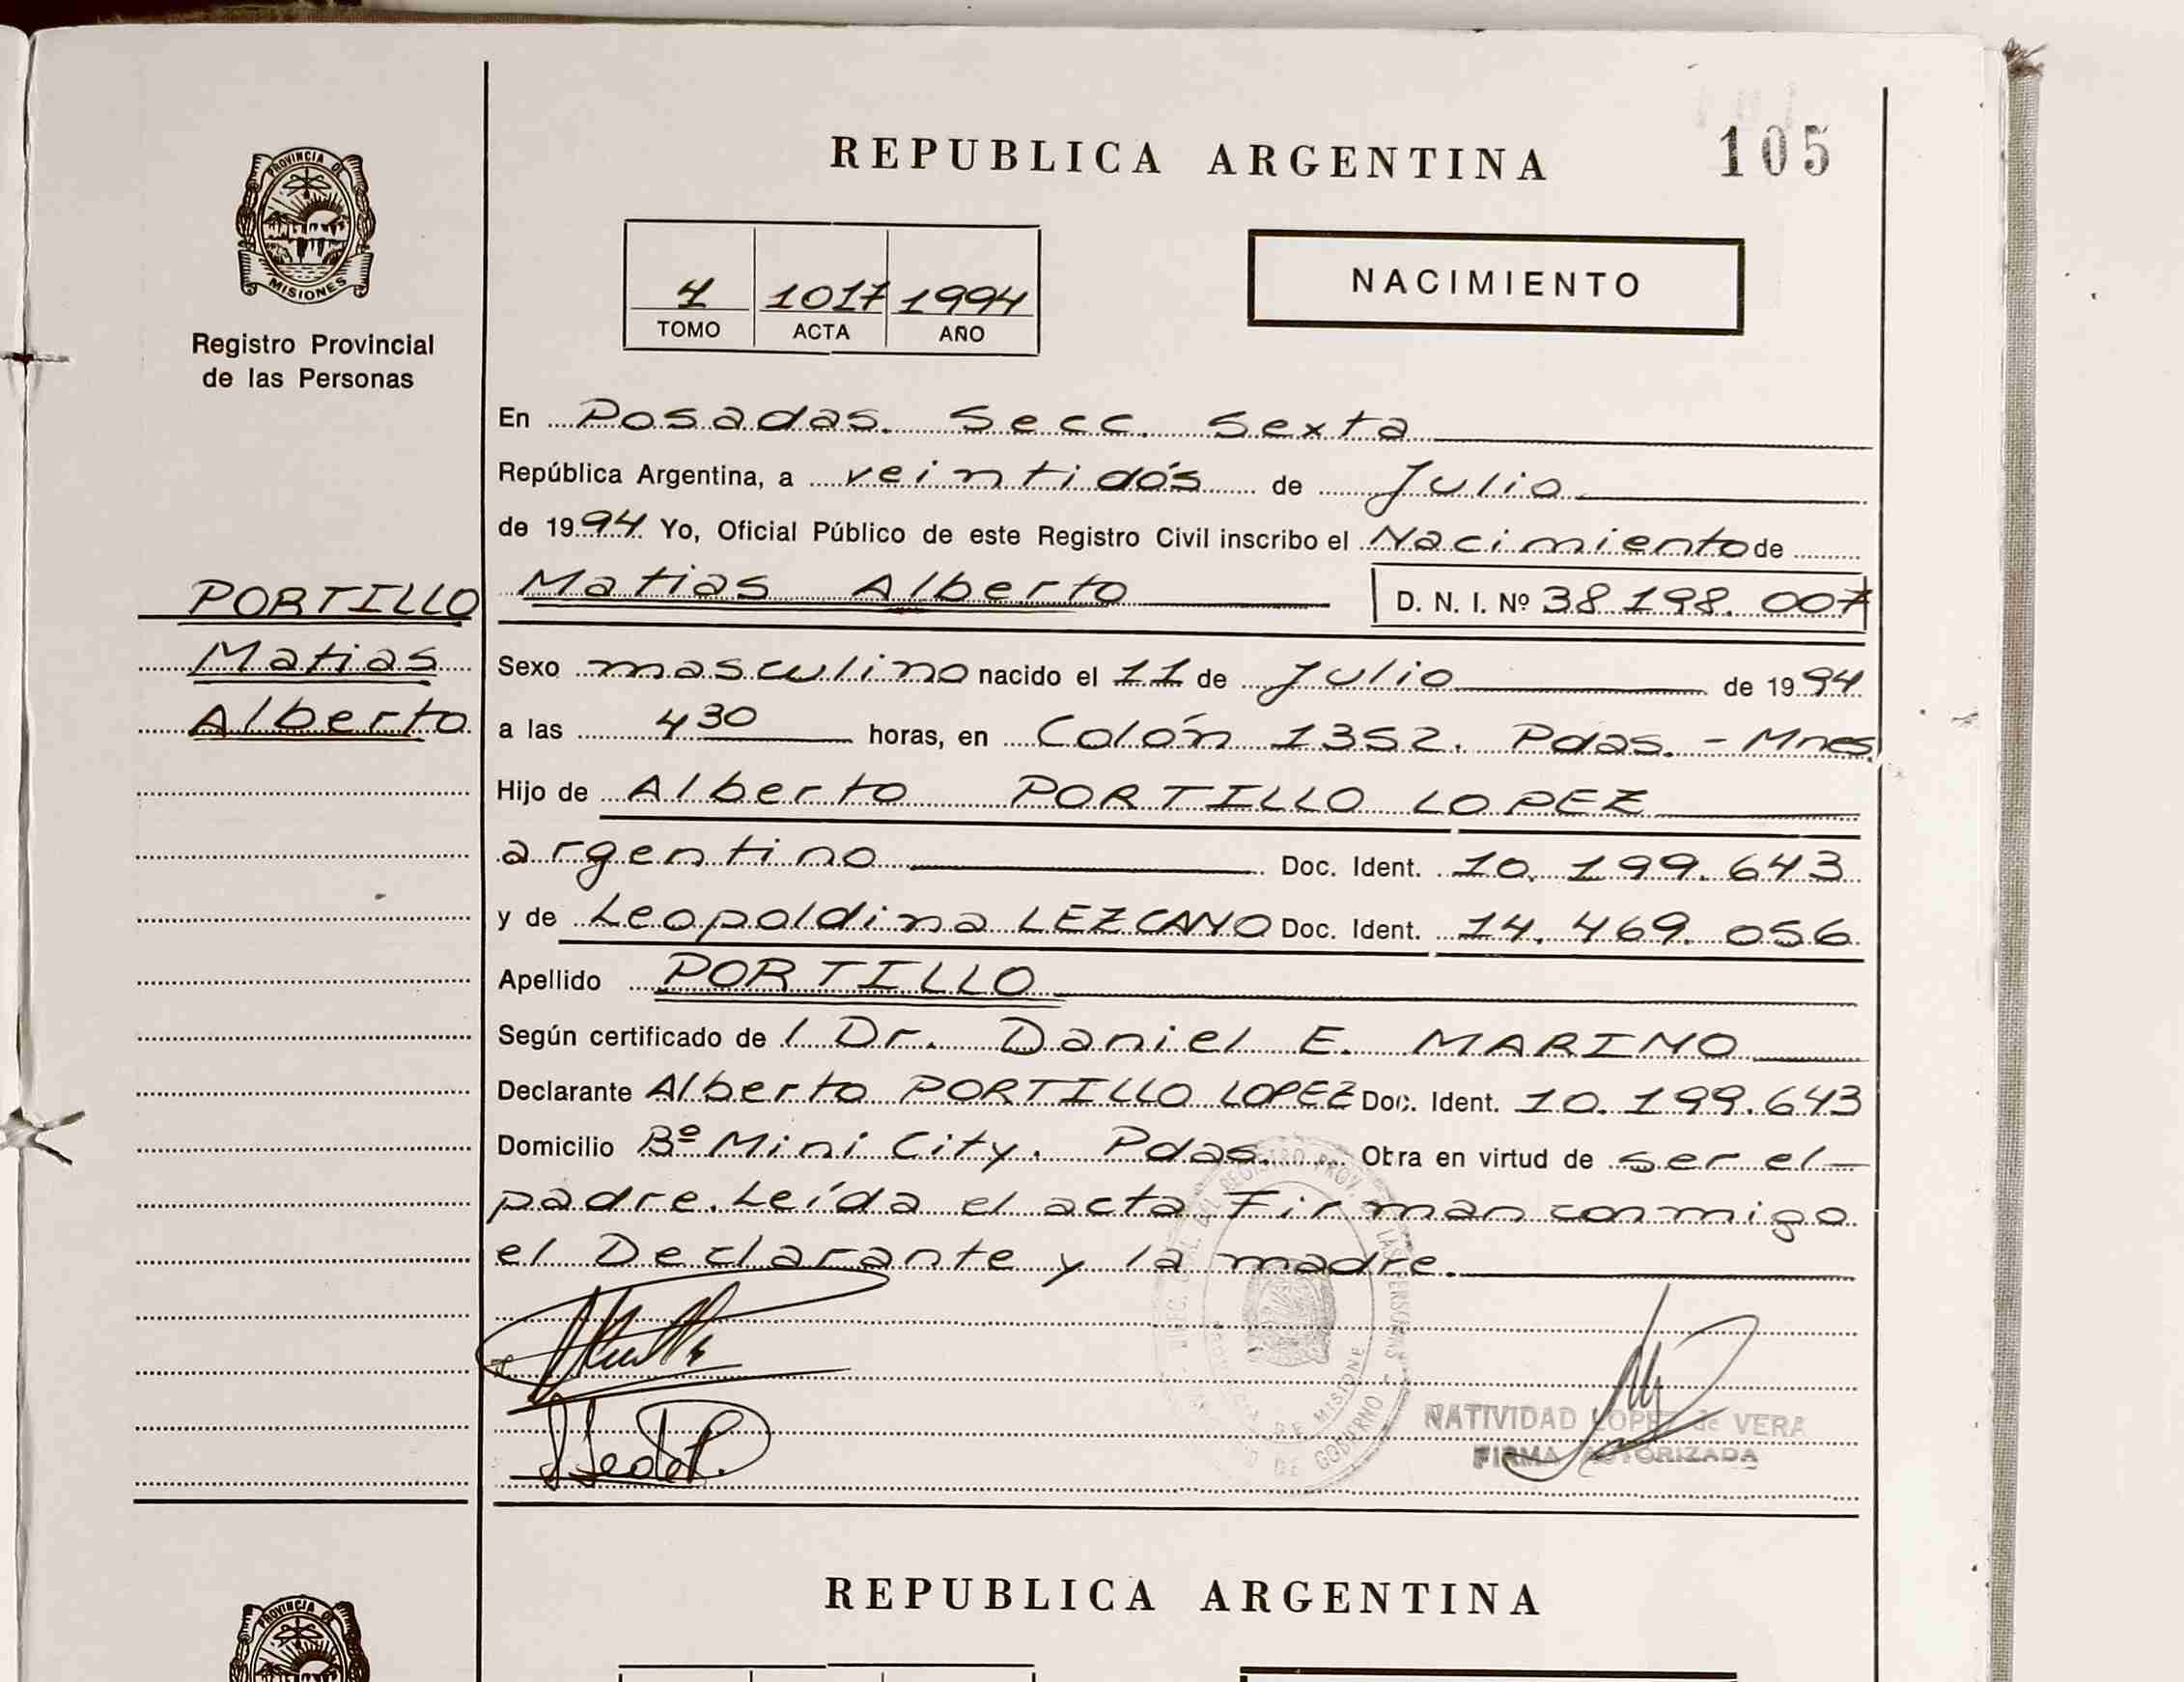 REPUBLICA ARGENTINA
105
PROVINCIA DE
MISIONES
Registro Provincial
de las Personas
4 1017 1994
TOMO ACTA AÑO
NACIMIENTO
En Posadas. Secc. Sexta
República Argentina, a veintidós de Julio
de 1994 Yo, Oficial Público de este Registro Civil inscribo el Nacimiento de
PORTILLO
Matias
Alberto
Matias Alberto D. N. I. Nº 38 198. 007
Sexo masculino nacido el 11 de Julio de 1994
a las 4 30 horas, en Colón 1352. Pdas. - Mnes.
Hijo de Alberto PORTILLO LOPEZ
argentino Doc. Ident. 10. 199. 643
y de Leopoldina LEZCANO Doc. Ident. 14. 469. 056
Apellido PORTILLO
Según certificado de l Dr. Daniel E. MARINO
Declarante Alberto PORTILLO LOPEZ Doc. Ident. 10. 199. 643
Domicilio Bº Mini City. Pdas. Obra en virtud de ser el
padre. Leída el acta Firman conmigo
el Declarante y la madre.
REGISTRO PROV. LAS PERSONAS
DE MISIONE
DE GOBIERNO
NATIVIDAD LOPEZ de VERA
FIRMA AUTORIZADA
REPUBLICA ARGENTINA
PROVINCIA DE